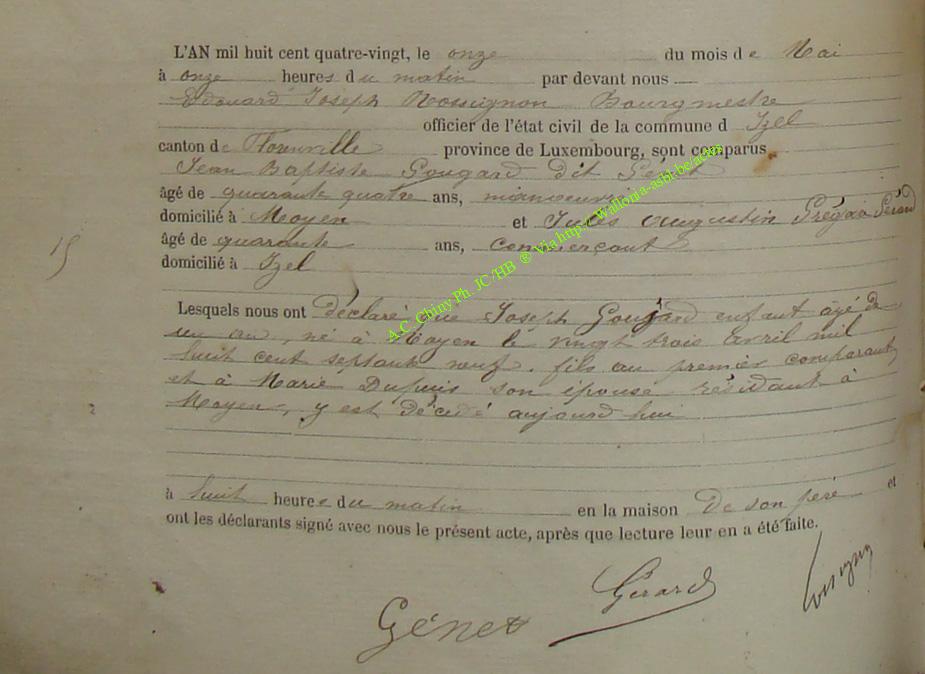 L'AN mil huit cent quatre-vingt, le onze du mois de Mai
à onze heures du matin par devant nous
Edouard Joseph Rossignon Bourgmestre
officier de l'état civil de la commune d Izel
canton de Florenville province de Luxembourg, sont comparus
Jean Baptiste Gougard dit Génet
âgé de quarante quatre ans, manoeuvre
domicilié à Moyen et Jules Augustin Grégoir Gérard
âgé de quarante ans, commerçant
domicilié à Izel
15
Lesquels nous ont déclaré que Joseph Goujard enfant âgé de
un an, né à Moyen le vingt trois avril mil
huit cent septante neuf, fils au premier comparant
et à Marie Dupuis son épouse résidant à
Moyen, y est décédé aujourd hui
à huit heures du matin en la maison De son père et
ont les déclarants signé avec nous le présent acte, après que lecture leur en a été faite.
Génet Gérard
A.C. Chiny Ph. JC/HB ® Via http://Wallonia-asbl.be/actes